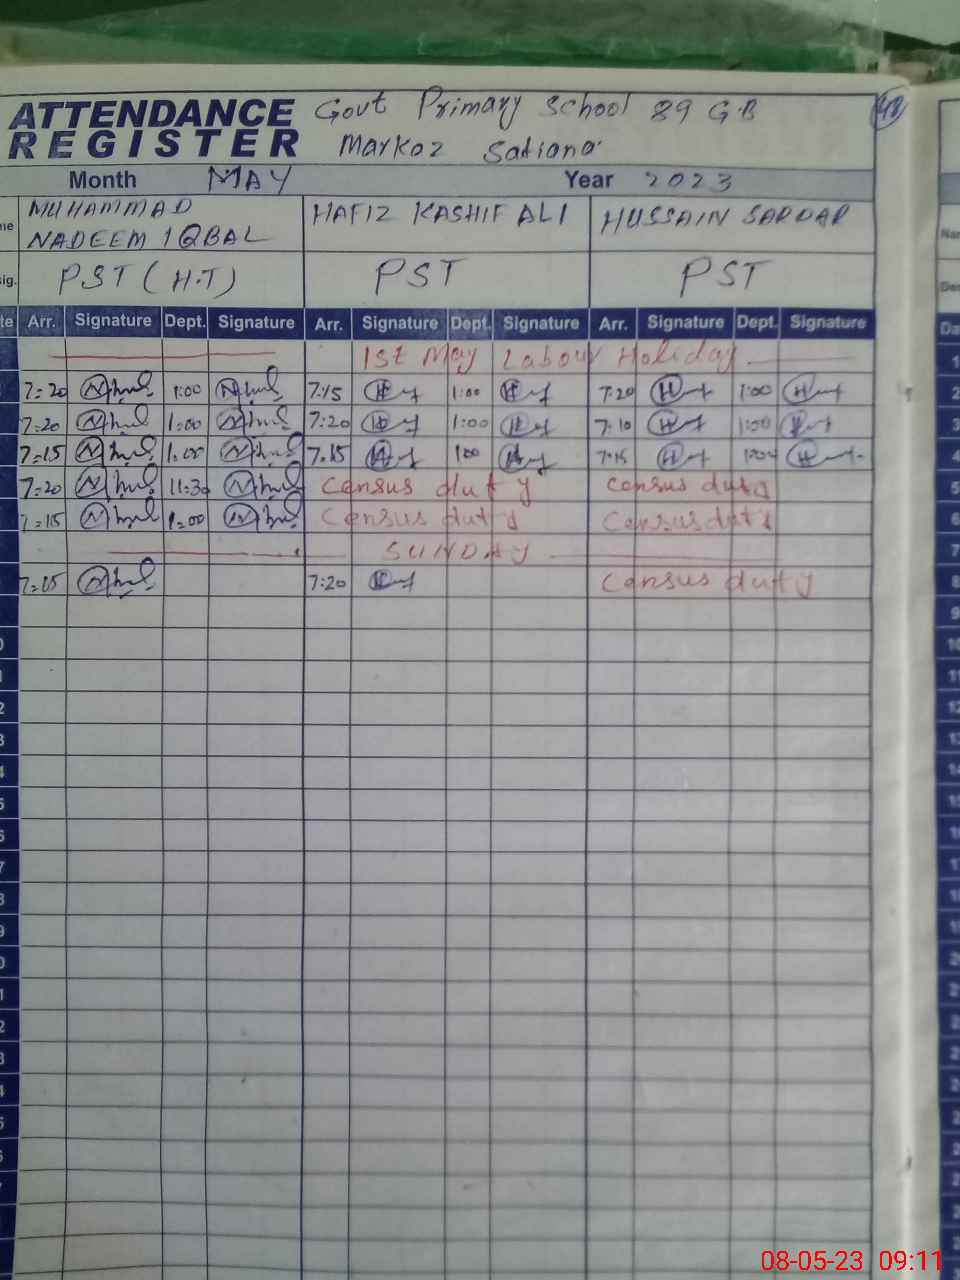 ATTENDANCE REGISTER
Govt Primary School 89 GB
Markoz Satiana
48
Month MAY Year 2023
MUHAMMAD NADEEM IQBAL HAFIZ KASHIF ALI HUSSAIN SARDAR
sig. PST (H.T) PST PST
Arr. Signature Dept. Signature Arr. Signature Dept. Signature Arr. Signature Dept. Signature
1st May Labour Holiday 1
7=20 1:00 7:15 1:00 7:20 1:00 2
7=20 1:00 7:20 1:00 7:10 1:00 3
7=15 7.15 7.15 4
7=20 11:30 Census duty Census duty 5
7=15 1=00 Census duty Census duty 6
SUNDAY 7
7=15 7:20 Census duty 8
9
10
11
12
13
14
15
16
17
18
19
20
08-05-23 09:11